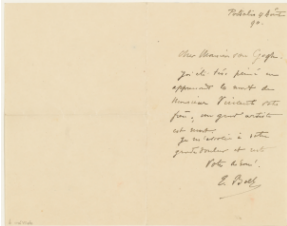 9 Août
90.
Cher Monsieur van Gogh.
J'ai été très peiné en
apprenant la mort de
Monsieur Vincent votre
frère, un grand artiste
est mort.
Je m'associe à votre
grande douleur et suis
Votre dévoué.
E. Boch